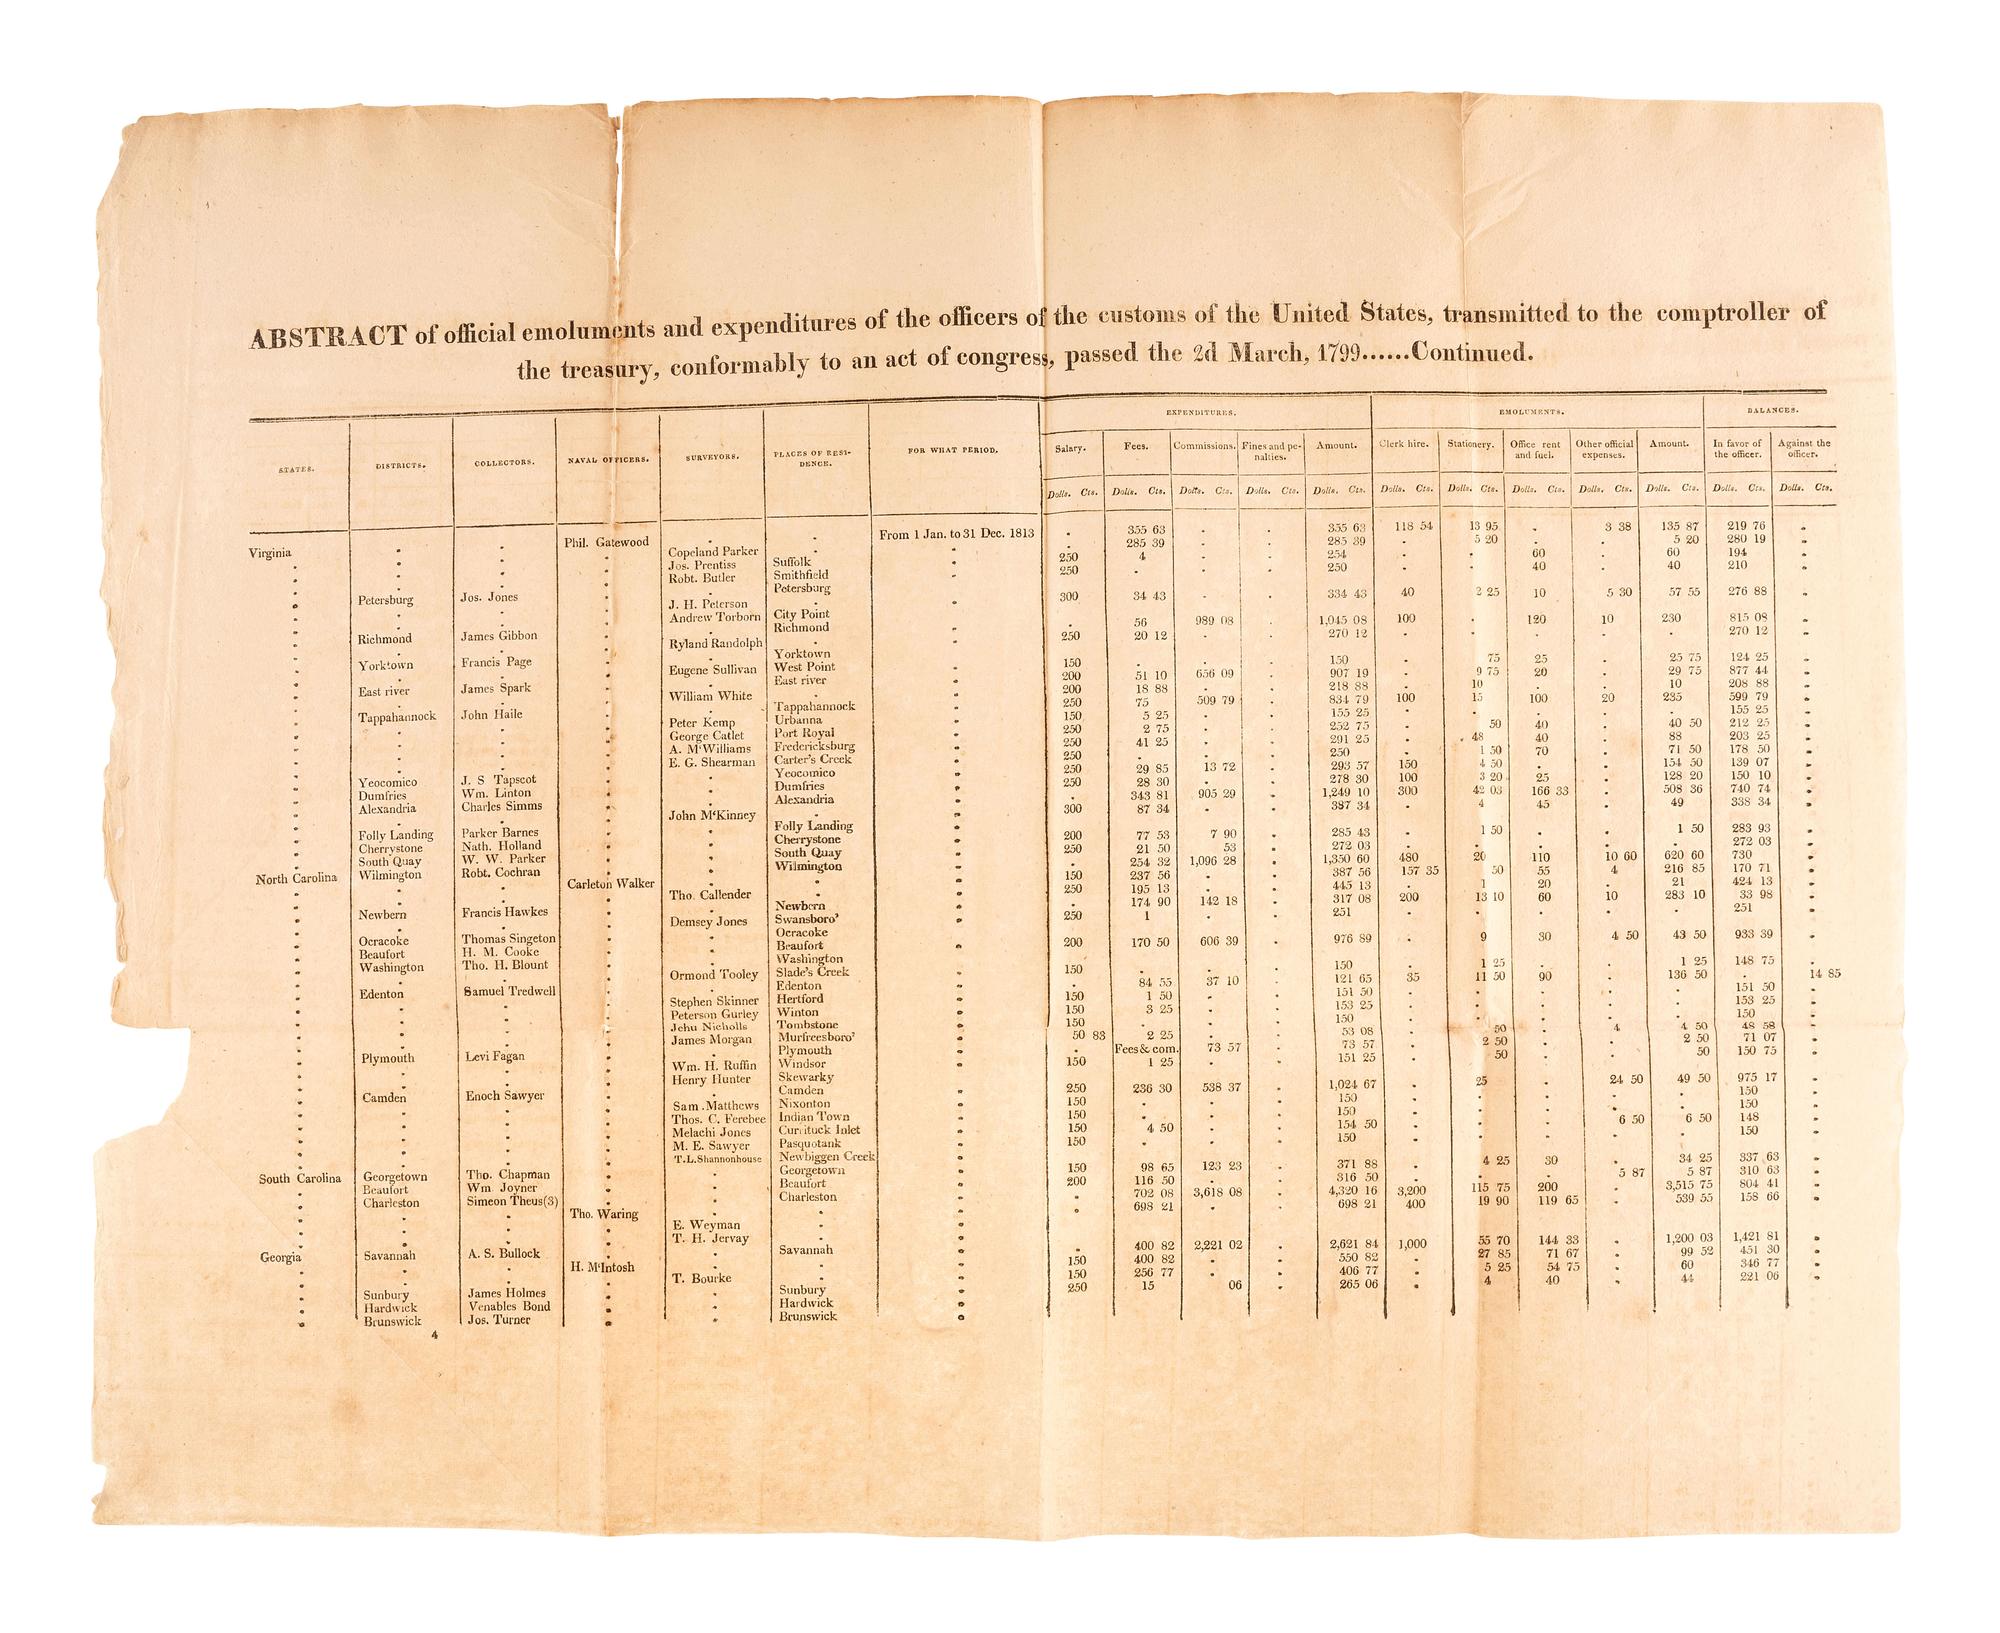 ABSTRACT of official emoluments and expenditures of the officers of the customs of the United States, transmitted to the comptroller of
the treasury, conformably to an act of congress, passed the 2d March, 1799......Continued.
EXPENDITURES. EMOLUMENTS. BALANCES.
STATES. DISTRICTS. COLLECTORS. NAVAL OFFICERS. SURVEYORS. PLACES OF RESI-DENCE. FOR WHAT PERIOD. Salary. Fees. Commissions. Fines and pe-nalties. Amount. Clerk hire. Stationery. Office rent and fuel. Other official expenses. Amount. In favor of the officer. Against the officer.
Dolls. Cts. Dolls. Cts. Dolls. Cts. Dolls. Cts. Dolls. Cts. Dolls. Cts. Dolls. Cts. Dolls. Cts. Dolls. Cts. Dolls. Cts. Dolls. Cts. Dolls. Cts.
Virginia Phil. Gatewood From 1 Jan. to 31 Dec. 1813 355 63 355 63 118 54 13 95 3 38 135 87 219 76
Copeland Parker 285 39 285 39 5 20 5 20 280 19
Jos. Prentiss Suffolk 250 4 254 60 60 194
Robt. Butler Smithfield 250 250 40 40 210
Petersburg Jos. Jones Petersburg
J. H. Peterson 300 34 43 334 43 40 2 25 10 5 30 57 55 276 88
Andrew Torborn City Point
Richmond James Gibbon Richmond 56 989 08 1,045 08 100 120 10 230 815 08
Ryland Randolph 250 20 12 270 12 270 12
Yorktown Francis Page Yorktown
Eugene Sullivan West Point 150 150 75 25 25 75 124 25
East river James Spark East river 200 51 10 656 09 907 19 9 75 20 29 75 877 44
William White 200 18 88 218 88 10 10 208 88
Tappahannock John Haile Tappahannock 250 75 509 79 834 79 100 15 100 20 235 599 79
Peter Kemp Urbanna 150 5 25 155 25 155 25
George Catlet Port Royal 250 2 75 252 75 50 40 40 50 212 25
A. M'Williams Fredericksburg 250 41 25 291 25 48 40 88 203 25
E. G. Shearman Carter's Creek 250 250 1 50 70 71 50 178 50
Yeocomico J. S Tapscot Yeocomico 250 29 85 13 72 293 57 150 4 50 154 50 139 07
Dumfries Wm. Linton Dumfries 250 28 30 278 30 100 3 20 25 128 20 150 10
Alexandria Charles Simms Alexandria 343 81 905 29 1,249 10 300 42 03 166 33 508 36 740 74
John M'Kinney 300 87 34 387 34 4 45 49 338 34
Folly Landing Parker Barnes Folly Landing
Cherrystone Nath. Holland Cherrystone 200 77 53 7 90 285 43 1 50 1 50 283 93
South Quay W. W. Parker South Quay 250 21 50 53 272 03 272 03
North Carolina Wilmington Robt. Cochran Wilmington 254 32 1,096 28 1,350 60 480 20 110 10 60 620 60 730
Carleton Walker 150 237 56 387 56 157 35 50 55 4 216 85 170 71
Tho. Callender 250 195 13 445 13 1 20 21 424 13
Newbern Francis Hawkes Newbern 174 90 142 18 317 08 200 13 10 60 10 283 10 33 98
Demsey Jones Swansboro' 250 1 251 251
Ocracoke Thomas Singeton Ocracoke
Beaufort H. M. Cooke Beaufort 200 170 50 606 39 976 89 9 30 4 50 43 50 933 39
Washington Tho. H. Blount Washington
Ormond Tooley Slade's Creek 150 150 1 25 1 25 148 75
Edenton Samuel Tredwell Edenton 84 55 37 10 121 65 35 11 50 90 136 50 14 85
Stephen Skinner Hertford 150 1 50 151 50 151 50
Peterson Gurley Winton 150 3 25 153 25 153 25
Jehu Nicholls Tombstone 150 150 150
James Morgan Murfreesboro' 50 83 2 25 53 08 50 4 4 50 48 58
Plymouth Levi Fagan Plymouth Fees & com. 73 57 73 57 2 50 2 50 71 07
Wm. H. Ruffin Windsor 150 1 25 151 25 50 50 150 75
Henry Hunter Skewarky
Camden Enoch Sawyer Camden 250 236 30 538 37 1,024 67 25 24 50 49 50 975 17
Sam. Matthews Nixonton 150 150 150
Thos. C. Ferebee Indian Town 150 150 150
Melachi Jones Currituck Inlet 150 4 50 154 50 6 50 6 50 148
M. E. Sawyer Pasquotank 150 150 150
T.L.Shannonhouse Newbiggen Creek
South Carolina Georgetown Tho. Chapman Georgetown 150 98 65 123 23 371 88 4 25 30 34 25 337 63
Beaufort Wm. Joyner Beaufort 200 116 50 316 50 5 87 5 87 310 63
Charleston Simeon Theus(3) Charleston 702 08 3,618 08 4,320 16 3,200 115 75 200 3,515 75 804 41
Tho. Waring 698 21 698 21 400 19 90 119 65 539 55 158 66
E. Weyman
T. H. Jervay
Georgia Savannah A. S. Bullock Savannah 400 82 2,221 02 2,621 84 1,000 55 70 144 33 1,200 03 1,421 81
H. M'Intosh 150 400 82 550 82 27 85 71 67 99 52 451 30
T. Bourke 150 256 77 406 77 5 25 54 75 60 346 77
Sunbury James Holmes Sunbury 250 15 06 265 06 4 40 44 221 06
Hardwick Venables Bond Hardwick
Brunswick Jos. Turner Brunswick
4